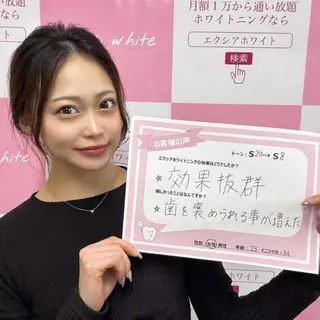 月額1万から通い放題
ホワイトニングなら
エクシアホワイト
検索
white
white
お客様の声
トーン:S20→S8
エクシアホワイトニングの効果はどうでしたか?
☆効果抜群
嬉しかったことはなんですか?
☆歯を褒められる事が増えた
性別:女性 男性 年齢:23 イニシャル:M